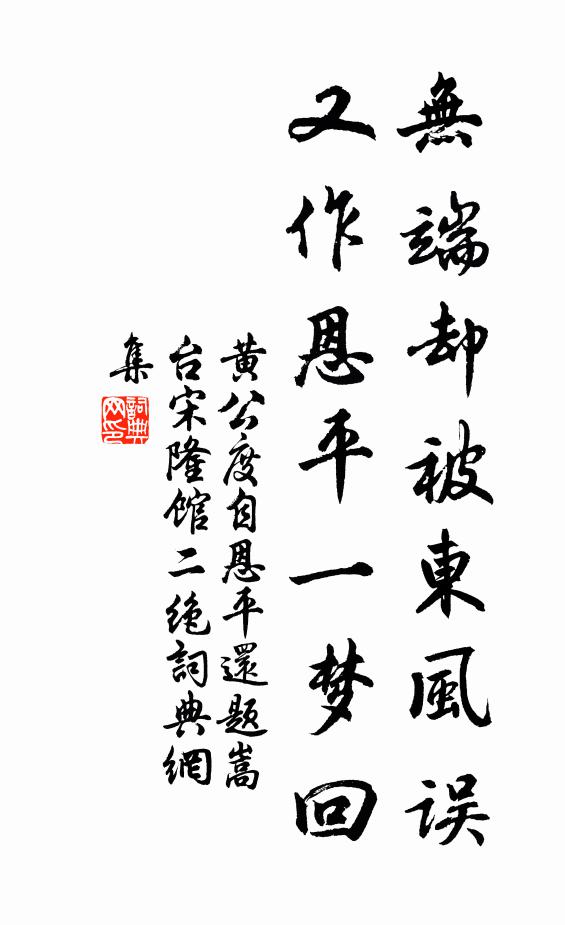 無端却被東風误
又作恩平一梦回
黄公度自恩平還题嵩
台宋隆館二绝詞典網
集
詞典
网印